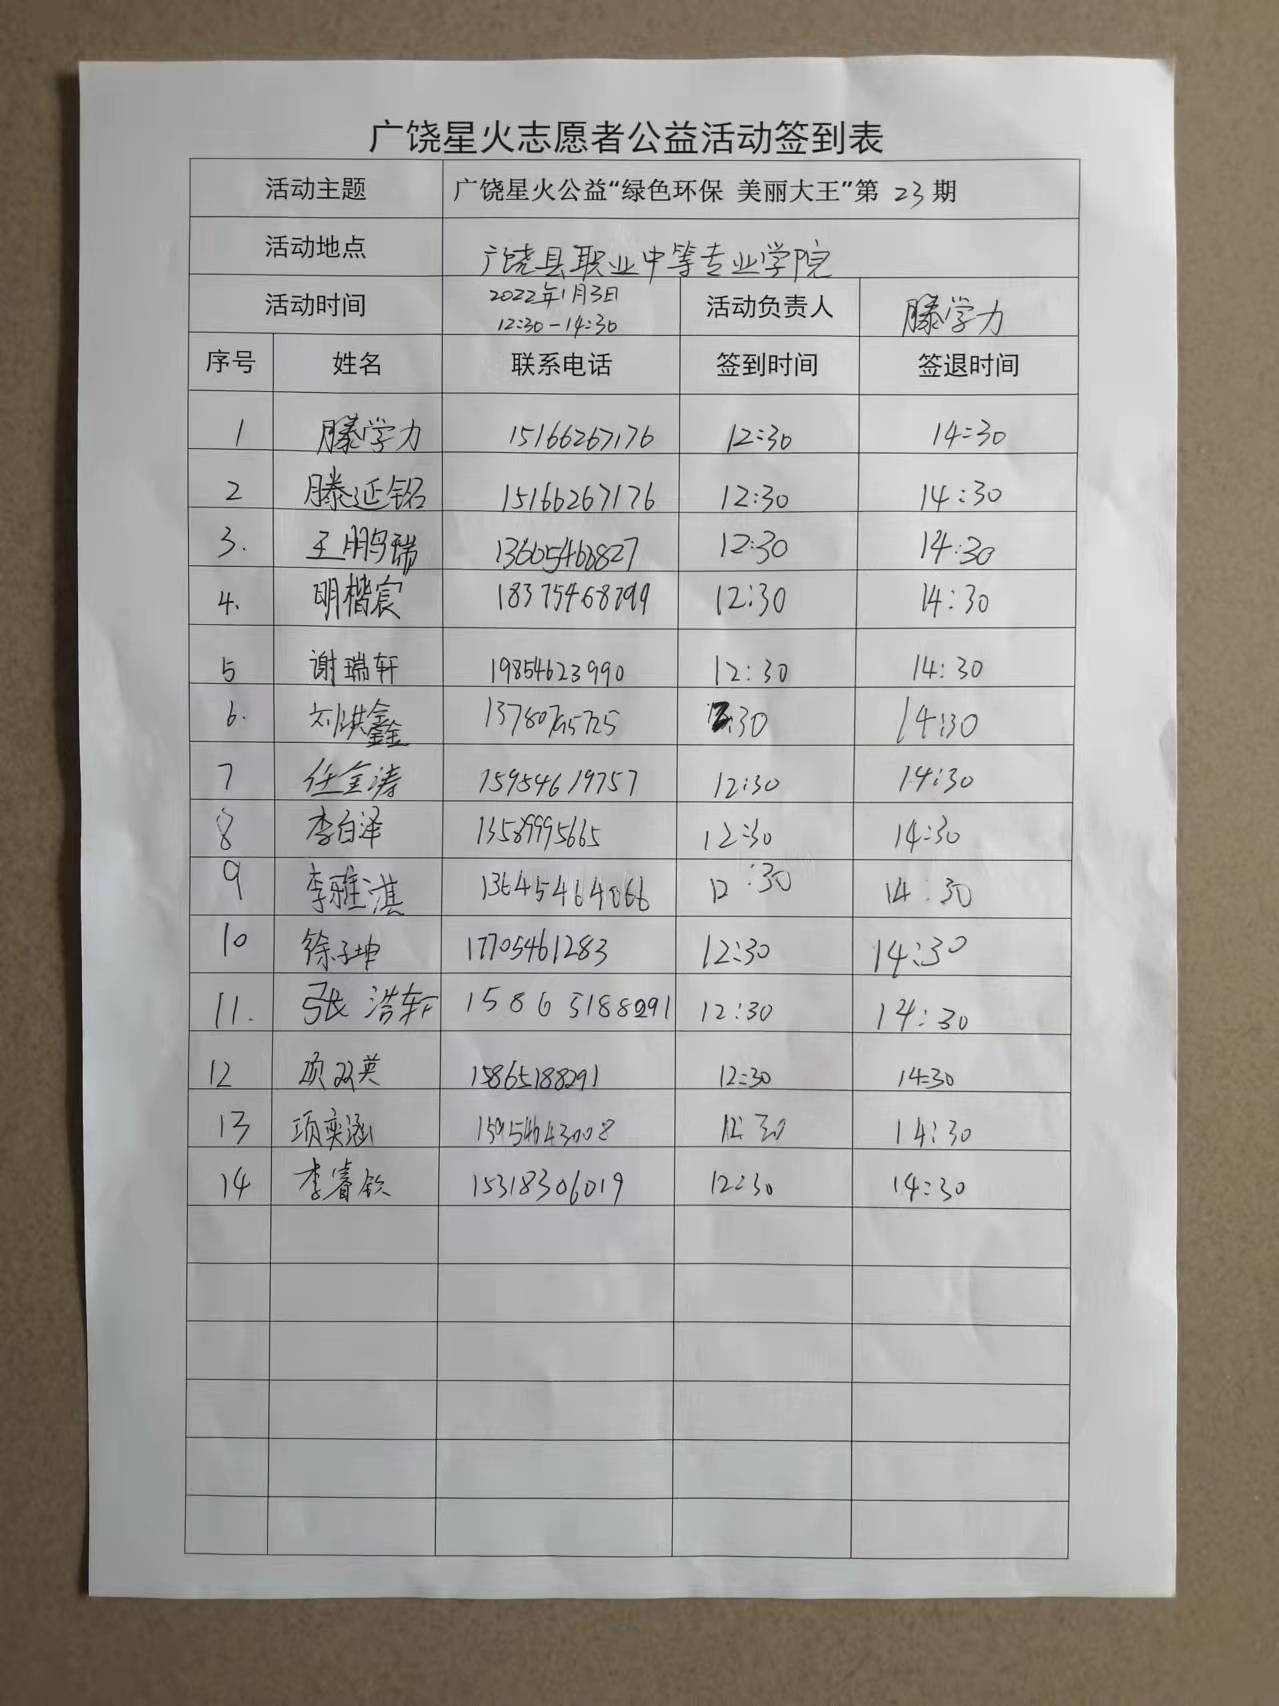 广饶星火志愿者公益活动签到表
活动主题 广饶星火公益“绿色环保 美丽大王”第 23 期
活动地点 广饶县职业中等专业学院
活动时间 2022年1月3日 12:30-14:30 活动负责人 滕学力
序号 姓名 联系电话 签到时间 签退时间
1 滕学力 15166267176 12:30 14:30
2 滕延铭 15166267176 12:30 14:30
3. 王鹏瑞 13605460827 12:30 14:30
4. 明楷宸 12:30 14:30
5 谢瑞轩 19854623990 12:30 14:30
6. 刘洪鑫 :30 14:30
7 任金涛 15954619757 12:30 14:30
8 李白泽 13589995665 12:30 14:30
9 李雅淇 12:30 14:30
10 徐子坤 17705461283 12:30 14:30
11. 张浩轩 15865188291 12:30 14:30
12 项双英 15865188291 12:30 14:30
13 项奕涵 15954643008 12:30 14:30
14 李睿钦 15318306019 12:30 14:30